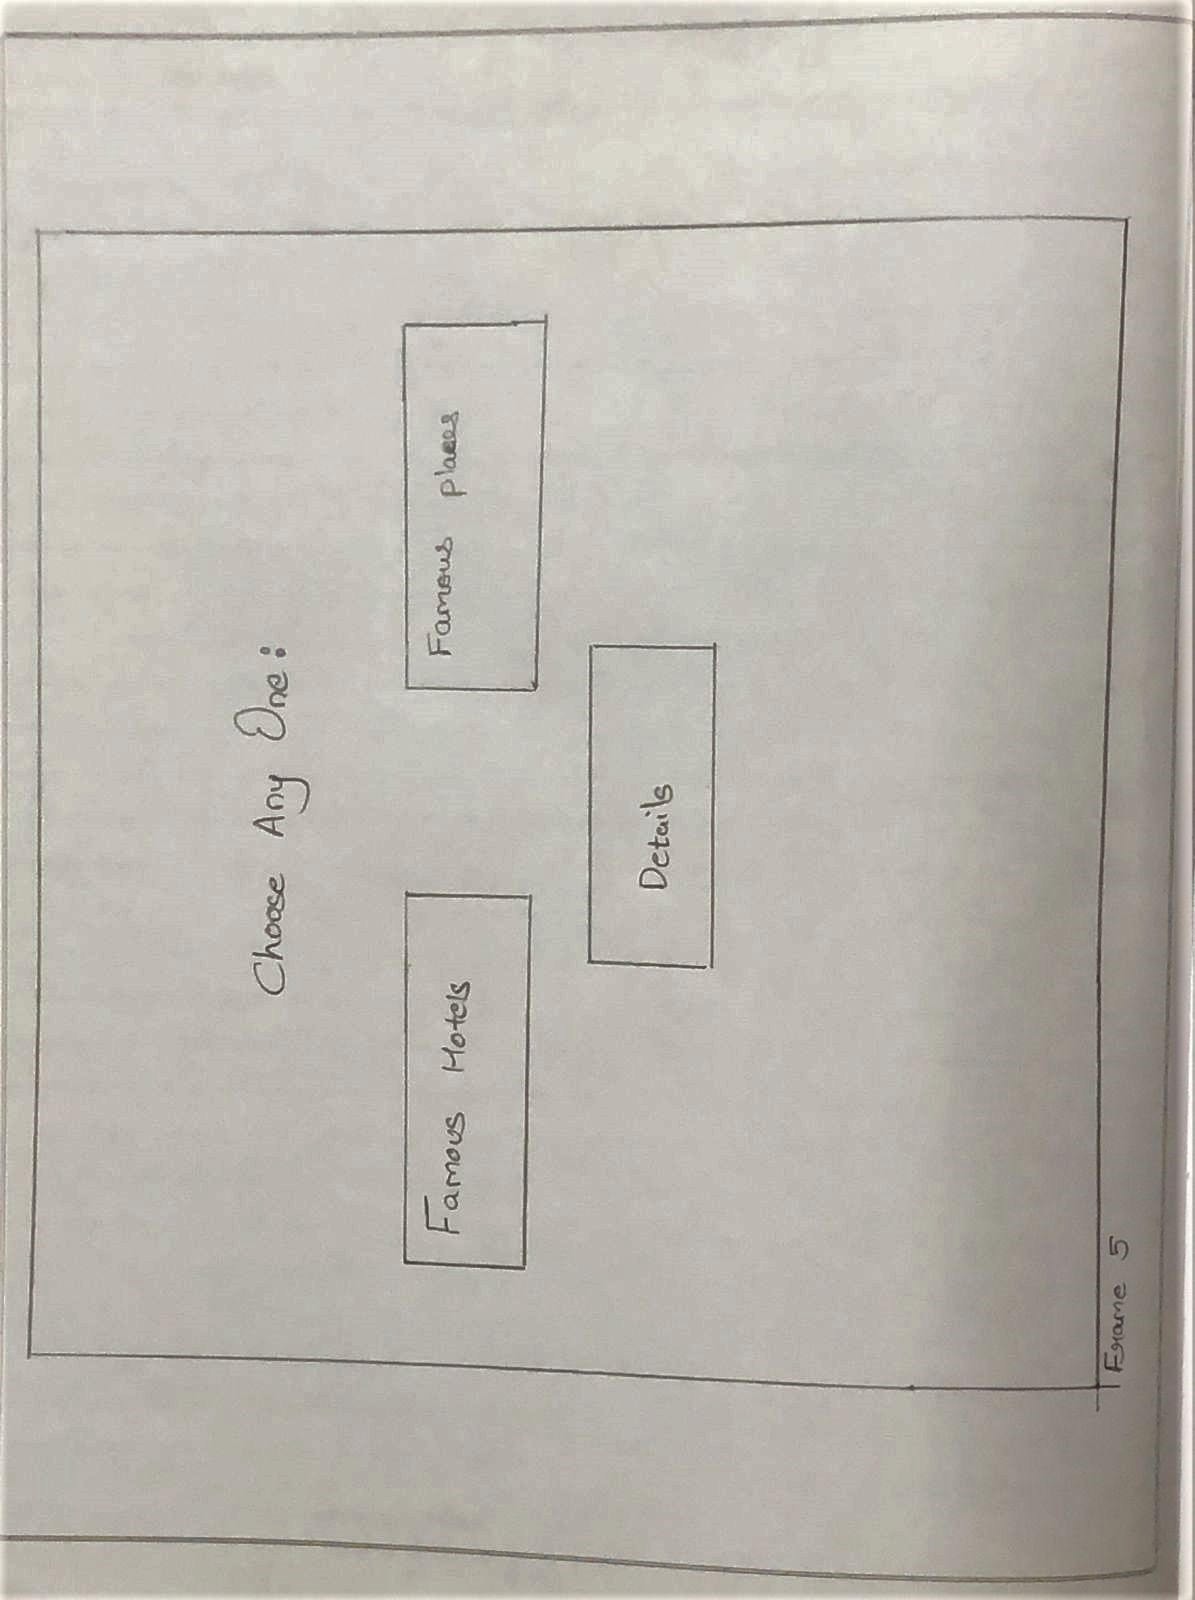 Choose Any One:
Famous Hotels
Famous places
Details
Frame 5